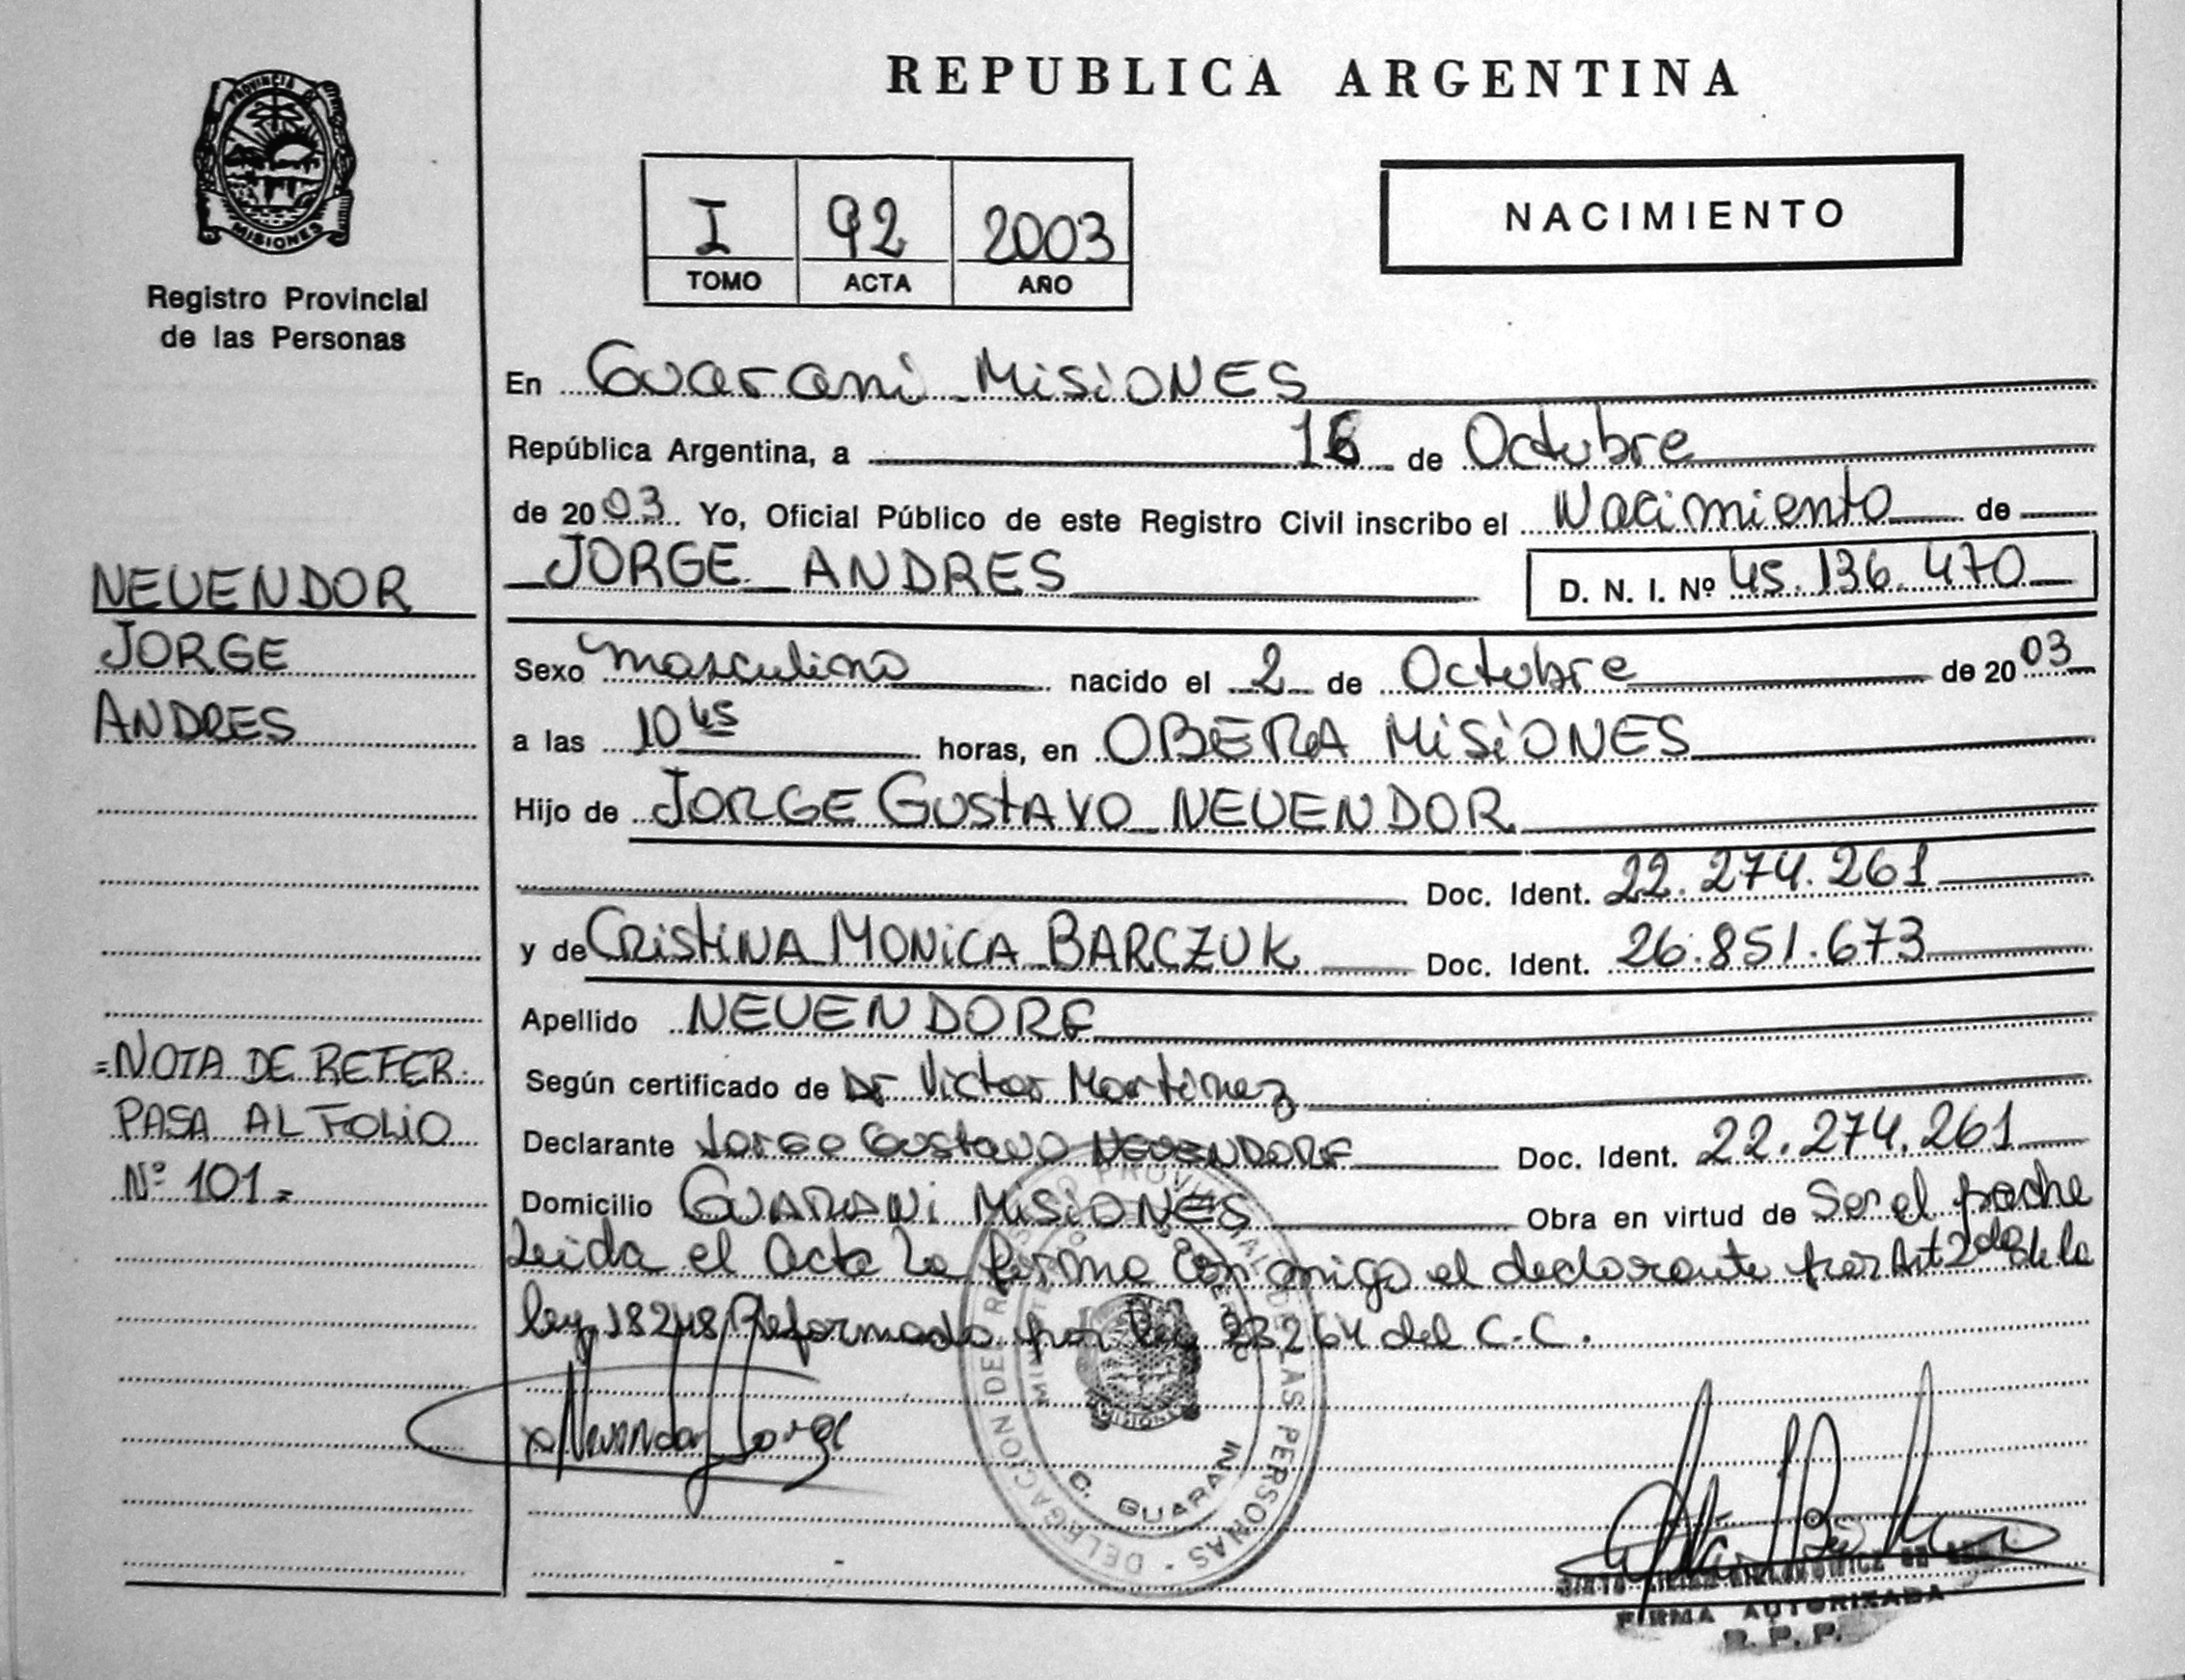 PROVINCIA DE
MISIONES
Registro Provincial
de las Personas
REPUBLICA ARGENTINA
I 92 2003
TOMO ACTA AÑO
NACIMIENTO
En Guarani - MISIONES
República Argentina, a 16 de Octubre
de 2003 Yo, Oficial Público de este Registro Civil inscribo el Nacimiento de
JORGE ANDRES D. N. I. Nº 45.136.470
NEUENDOR
JORGE
ANDRES
Sexo masculino nacido el 2 de Octubre de 2003
a las 10 45 horas, en OBERA MISIONES
Hijo de JORGE GUSTAVO NEUENDOR
Doc. Ident. 22.274.261
y de CRISTINA MONICA BARCZUK Doc. Ident. 26.851.673
Apellido NEUENDORF
Según certificado de Dr Victor Martinez
Declarante Jorge Gustavo NEUENDORF Doc. Ident. 22.274.261
Domicilio GUARANI MISIONES Obra en virtud de Ser el padre
Leida el Acta La firma Con migo el declarante por Art 2do de la
ley 18248 Reformada por ley 23264 del C.C.
=NOTA DE REFER.
PASA AL FOLIO
Nº 101=
x Neuendor Jorge
DELEGACION DE REGISTRO PROVINCIAL DE LAS PERSONAS
C. GUARANI
MISIONES
FIRMA AUTORIZADA
R. P. P.